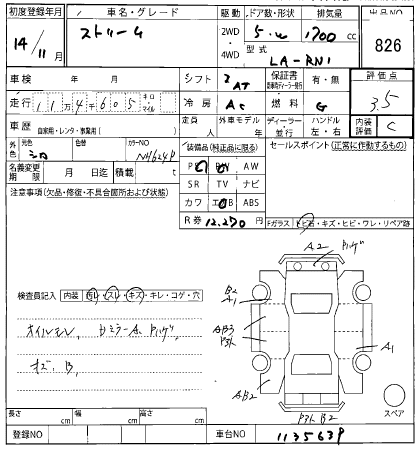 初度登録年月 車名・グレード 駆動 ドア数・形状 排気量 出品NO
14/11月 ストリーム 2WD・4WD 5・W 1700 cc 826
型式 LA-RN1
車検 年 月 シフト AT 保証書 有・無 評価点
走行 11万4千605 キロ マイル 冷房 AC 燃料 G 3.5
車歴 自家用・レンタ・事業用( ) 定員 人 外車モデル 年 ディーラー・並行 ハンドル 左・右 内装評価 C
外色 元色 シロ 色替 カラーNO NH624P
装備品(純正品に限る) セールスポイント(正常に作動するもの)
名義変更期限 月 日迄 積載 t
PS PW AW
注意事項(欠品・修復・不具合箇所および状態)
SR TV ナビ
カワ エアB ABS
R券 12,270 円
Fガラス トビ石・キズ・ヒビ・ワレ・リペア跡
A2
検査員記入 内装 ヨゴレ・スレ・キズ・キレ・コゲ・穴
B2
A1
オイルモレ
AB3
A1
キズ、B、
AB2
B2
スペア
長さ cm 幅 cm 高さ cm
登録NO 車台NO 1135639